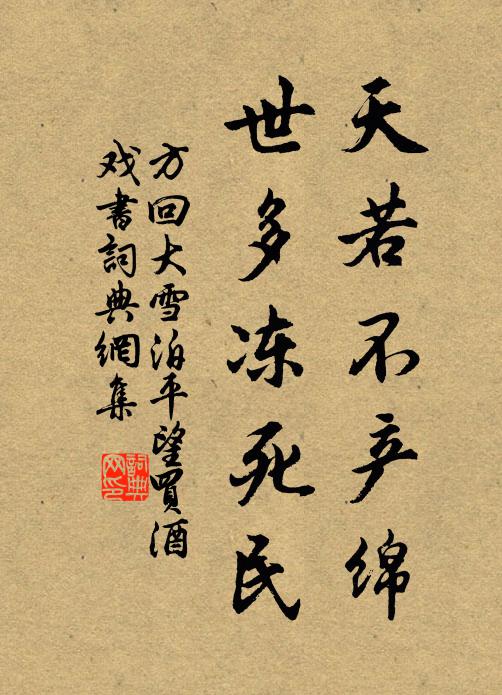 天若不产绵
世多冻死民
方回大雪泊平望買酒
戏書詞典網集
詞典
网印